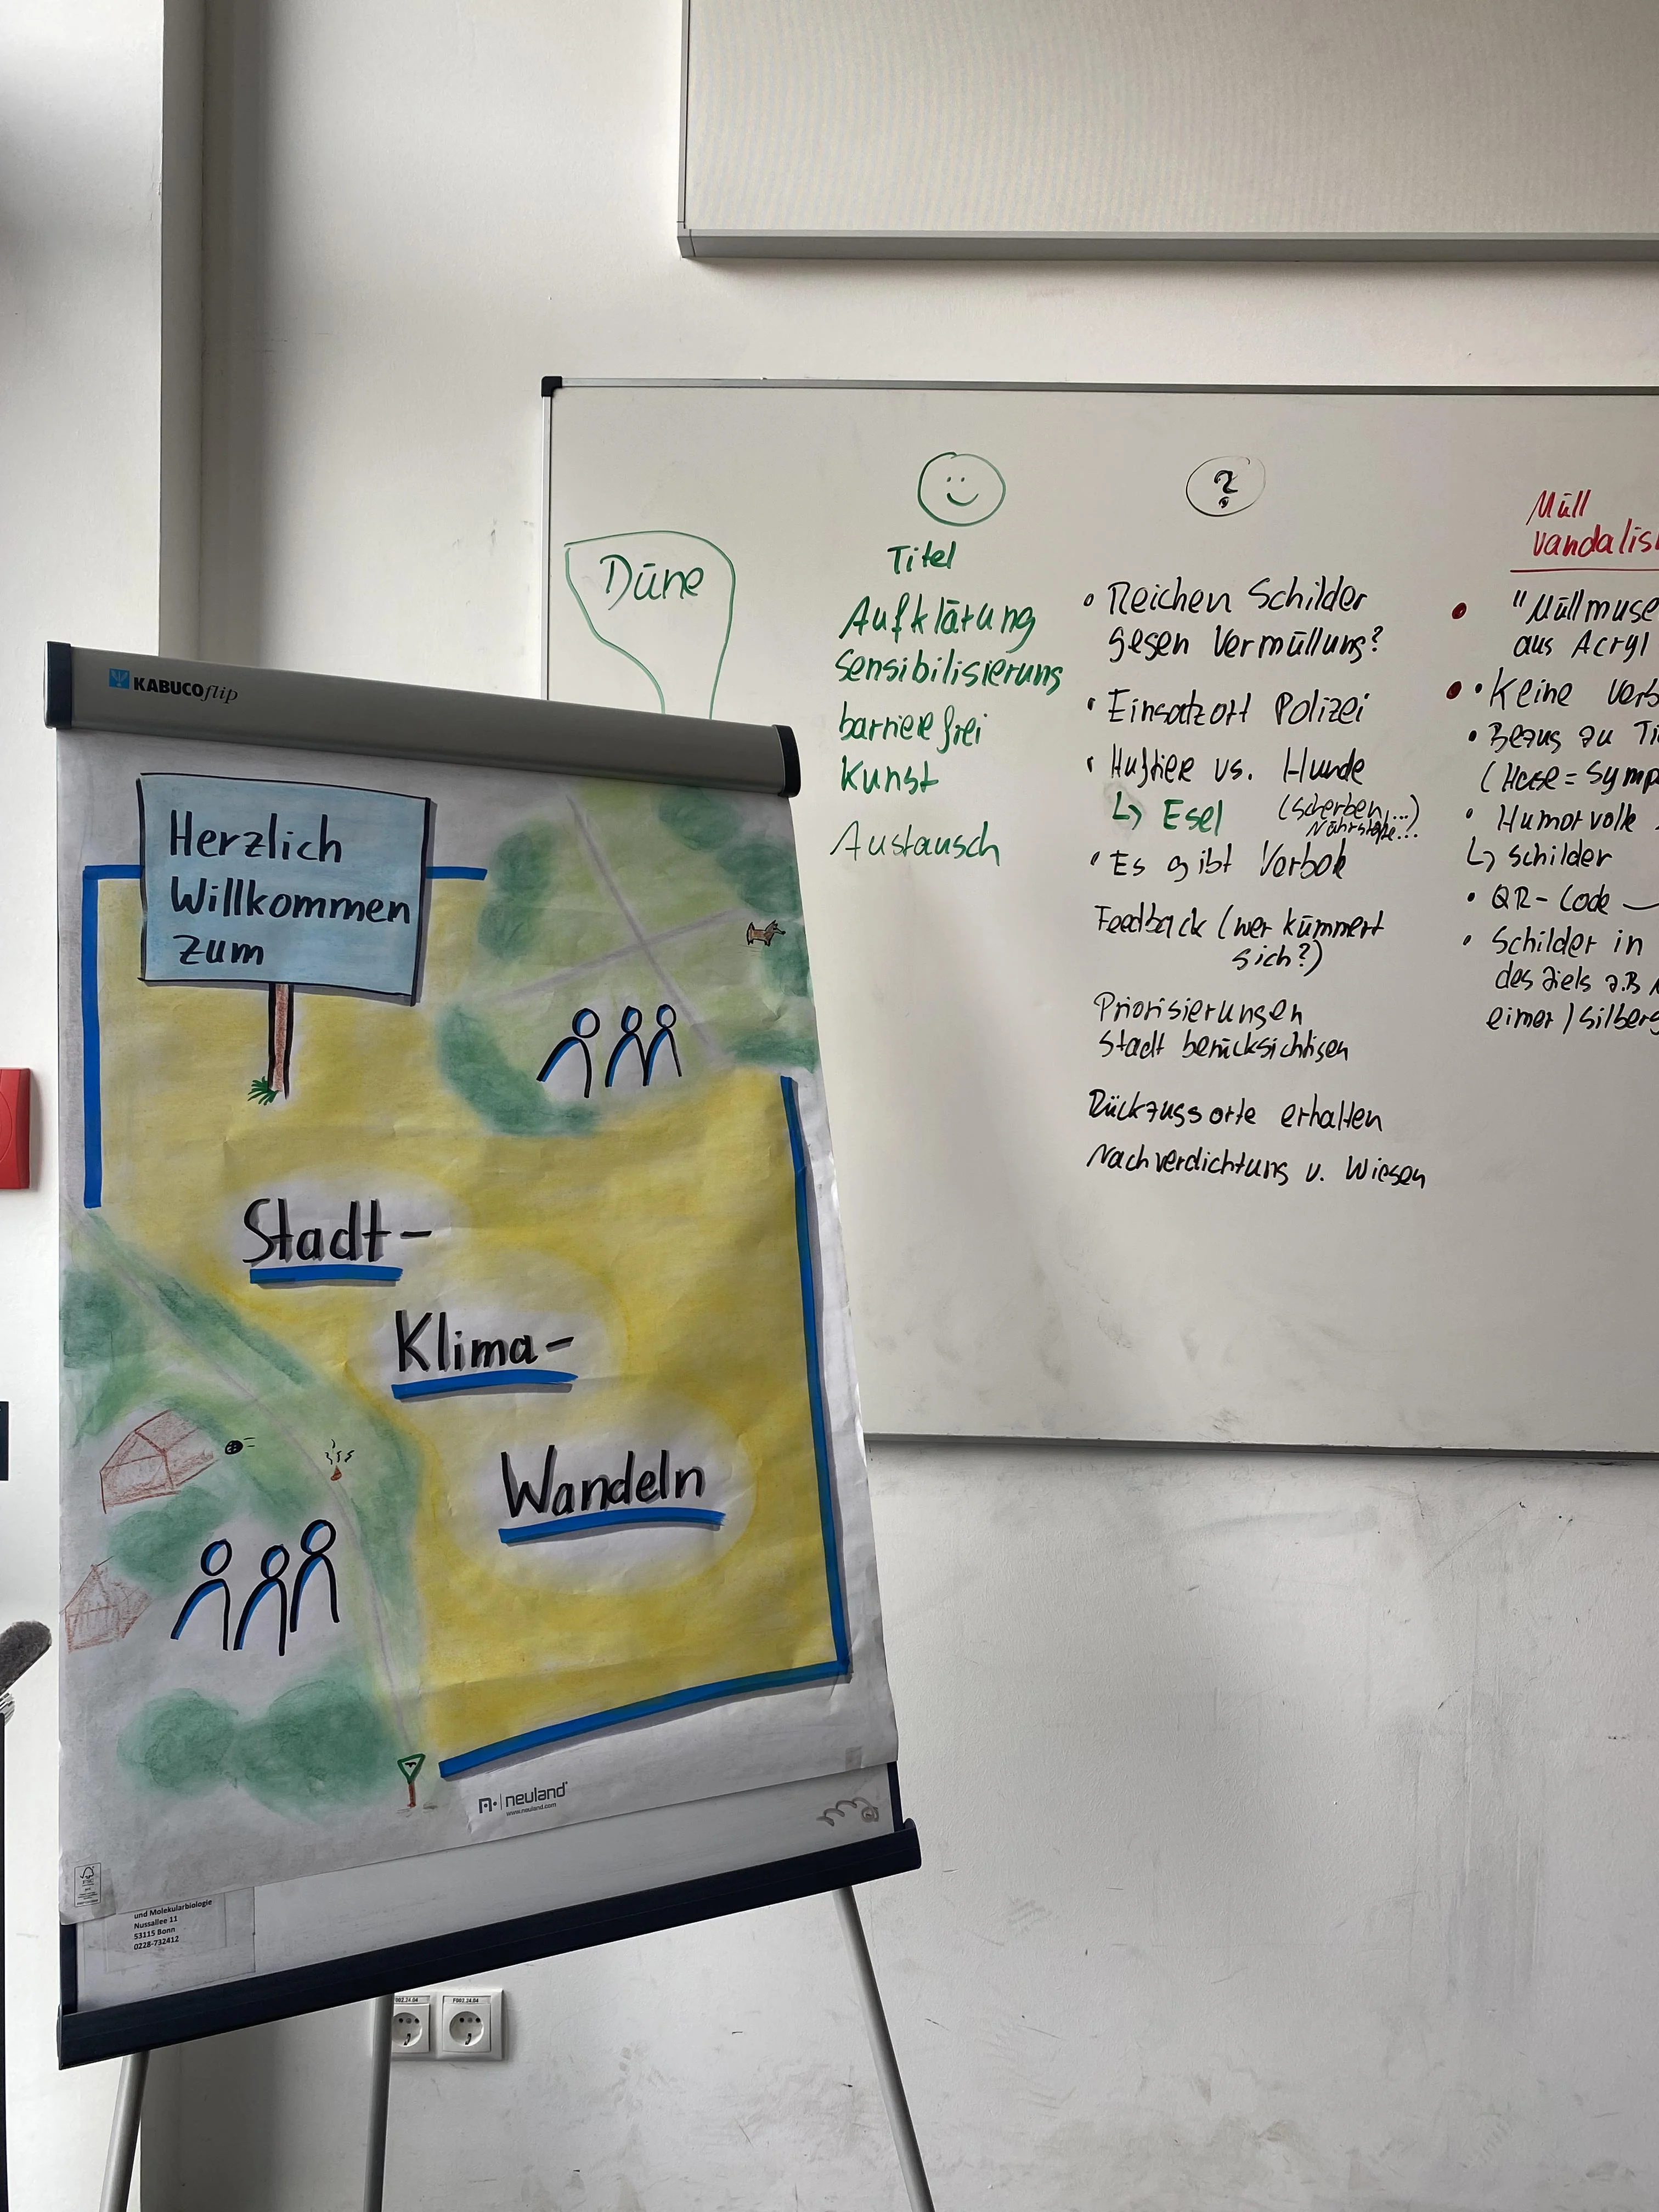 KABUCOflip
Herzlich
Willkommen
zum
Stadt-
Klima-
Wandeln
neuland
www.neuland.com
und Molekularbiologie
Nussallee 11
53115 Bonn
0228-732412
F002.24.04
Düne
Titel
Aufklärung
Sensibilisierung
barrierefrei
Kunst
Austausch
?
• Reichen Schilder
gegen Vermüllung?
• Einsatzort Polizei
• Huftiere vs. Hunde
↳ Esel (Scherben,...)
Nährstoffe...
• Es gibt Verbote
Feedback (wer kümmert
sich?)
Priorisierungen
Stadt berücksichtigen
Rückzugsorte erhalten
Nachverdichtung v. Wiesen
Müll
vandalis
• "Müllmuse
aus Acryl
• Keine Verb
• Bezug zu Ti
(Hase = Symp
• Humorvolle
↳ Schilder
• QR-Code
• Schilder in
des Ziels z.B
eimer / Silberg